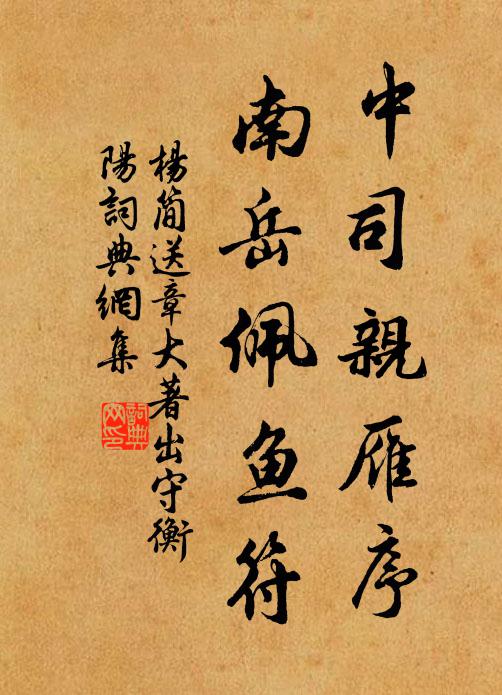 中司親雁序
南岳佩鱼符
楊简送章大著出守衡
陽詞典網集
詞典网印